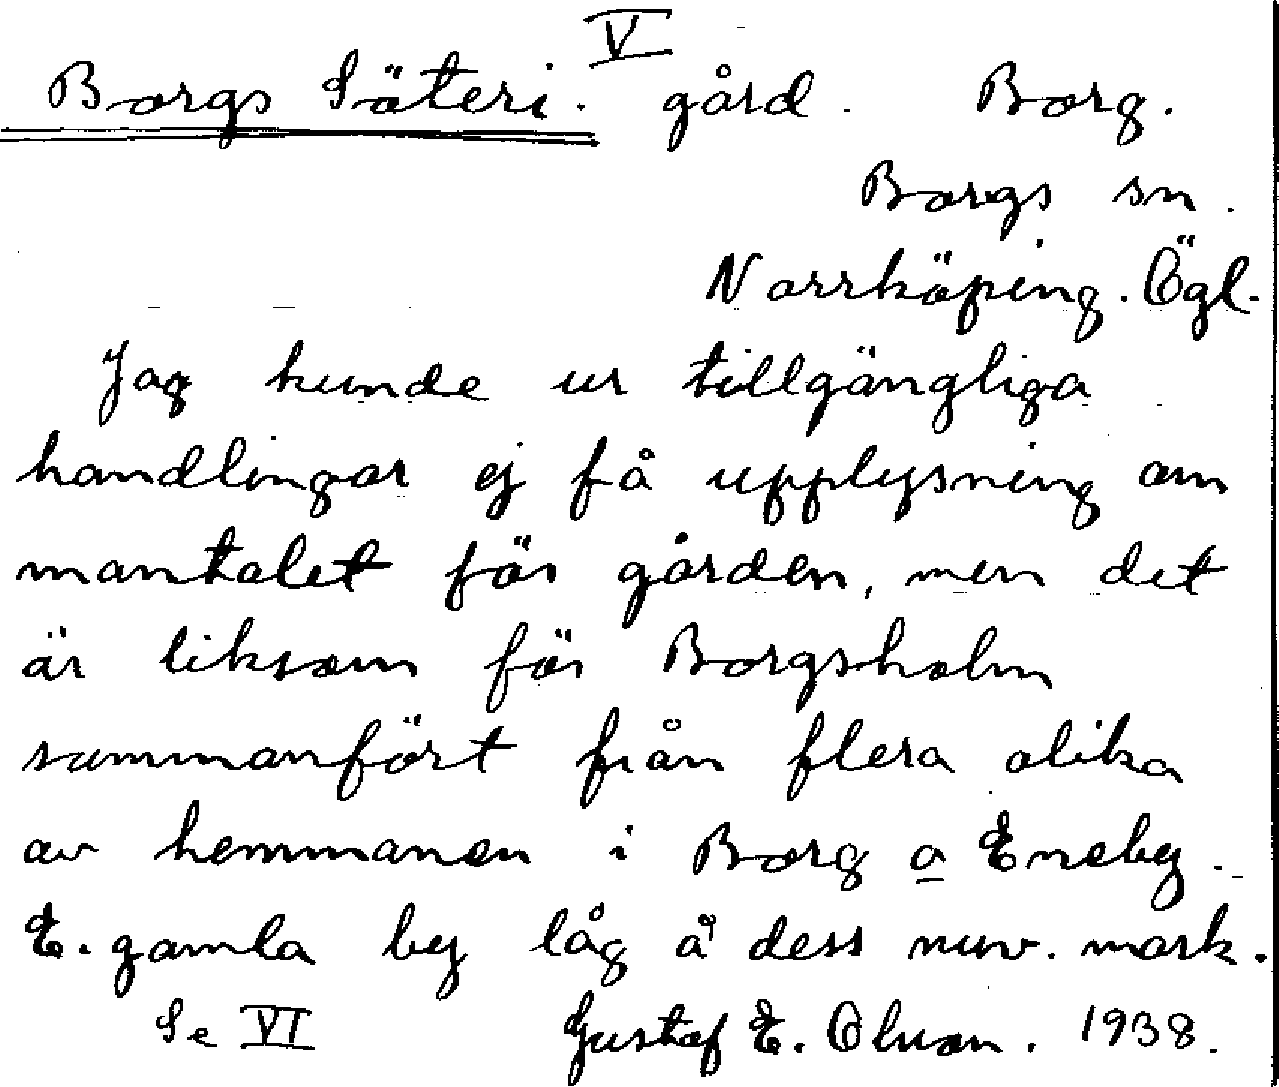 V
Borgs Säteri. gård. Borg.
Borgs sn.
Norrköping. Ögl.
Jag kunde ur tillgängliga
handlingar ej få upplysning om
mantalet för gården, men det
är liksom för Borgsholm
sammanfört från flera olika
av hemmanen i Borg o Eneby.
E. gamla by låg å dess nuv. mark.
Se VI Gustaf E. Olsson. 1938.